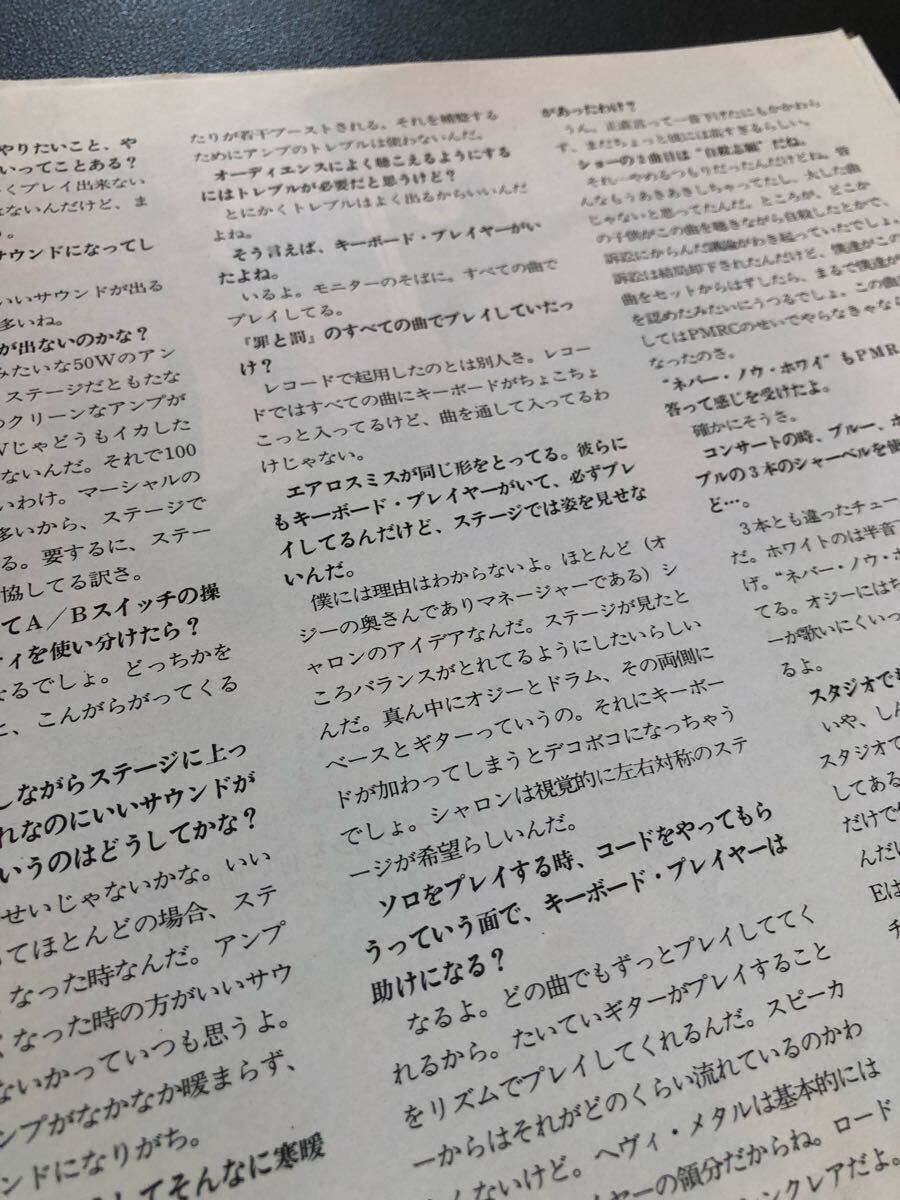 やりたいこと、や
いってことある？
くプレイ出来ない
はないんだけど、ま
う。
サウンドになってし
いいサウンドが出る
多いね。
が出ないのかな？
みたいな50Wのアン
ステージだともたな
つクリーンなアンプが
Wじゃどうもイカした
ないんだ。それで100
いわけ。マーシャルの
多いから、ステージで
る。要するに、ステー
協してる訳さ。
てA／Bスイッチの操
ティを使い分けたら？
なるでしょ。どっちかを
と、こんがらがってくる
しながらステージに上っ
れなのにいいサウンドが
いうのはどうしてかな？
せいじゃないかな。いい
ってほとんどの場合、ステ
なった時なんだ。アンプ
くなった時の方がいいサウ
ないかっていつも思うよ。
ンプがなかなか暖まらず、
ンドになりがち。
してそんなに寒暖
たりが若干ブーストされる。それを補整する
ためにアンプのトレブルは使わないんだ。
オーディエンスによく聴こえるようにする
にはトレブルが必要だと思うけど？
とにかくトレブルはよく出るからいいんだ
よね。
そう言えば、キーボード・プレイヤーがい
たよね。
いるよ。モニターのそばに。すべての曲で
プレイしてる。
『罪と罰』のすべての曲でプレイしていたっ
け？
レコードで起用したのとは別人さ。レコー
ドではすべての曲にキーボードがちょこちょ
こっと入ってるけど、曲を通して入ってるわ
けじゃない。
エアロスミスが同じ形をとってる。彼らに
もキーボード・プレイヤーがいて、必ずプレ
イしてるんだけど、ステージでは姿を見せな
いんだ。
僕には理由はわからないよ。ほとんど（オ
ジーの奥さんでありマネージャーである）シ
ャロンのアイデアなんだ。ステージが見たと
ころバランスがとれてるようにしたいらしい
んだ。真ん中にオジーとドラム、その両側に
ベースとギターっていうの。それにキーボー
ドが加わってしまうとデコボコになっちゃう
でしょ。シャロンは視覚的に左右対称のステ
ージが希望らしいんだ。
ソロをプレイする時、コードをやってもら
うっていう面で、キーボード・プレイヤーは
助けになる？
なるよ。どの曲でもずっとプレイしててく
れるから。たいていギターがプレイすること
をリズムでプレイしてくれるんだ。スピーカ
ーからはそれがどのくらい流れているのかわ
くんないけど。ヘヴィ・メタルは基本的には
ヤーの領分だからね。ロード
ンクレアだよ。
があったわけ？
うん。正直言って一音下げたにもかかわら
ず、まだちょっと彼には高すぎるらしい。
ショーの2曲目は“自殺志願”だね。
それ…やめるつもりだったんだけどね。皆
んなもうあきあきしちゃってたし、大した曲
じゃないと思ってたんだ。ところが、どこか
の子供がこの曲を聴きながら自殺したとかで、
訴訟にからんだ議論がわき起っていたでしょ。
訴訟は結局却下されたんだけど、僕達がこの
曲をセットからはずしたら、まるで僕達が
を認めたみたいにうつるでしょ。この曲
してはPMRCのせいでやらなきゃなら
なったのさ。
“ネバー・ノウ・ホワイ”もPMR
答って感じを受けたよ。
確かにそうさ。
コンサートの時、ブルー、ホ
プルの3本のシャーベルを使
ど…。
3本とも違ったチュー
だ。ホワイトのは半音下
げ。“ネバー・ノウ・ホ
てる。オジーにはち
ーが歌いにくいっ
るよ。
スタジオでも
いや、しん
スタジオで
してある
だけで
んだい
Eは
チ